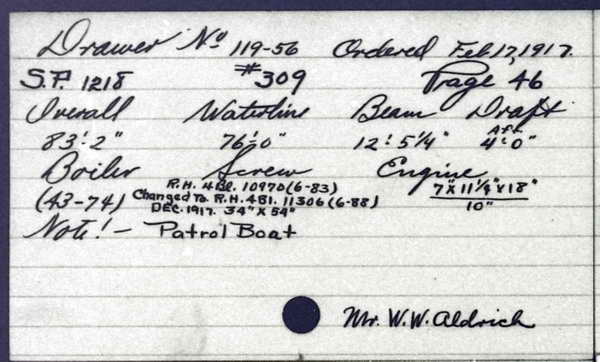 Drawer No 119-56 Ordered Feb 17, 1917.
S.P. 1218 #309 Page 46
Overall Waterline Beam Draft
83'-2" 76'-0" 12'-5 1/4" Aft. 4'-0"
Boiler Screw Engine
(43-74) R.H. 4 Bl. 10970 (6-83) 7" x 11 1/4" x 18"
Changed To R.H. 4 Bl. 11306 (6-88) 10"
DEC. 1917. 34" x 54"
Note! - Patrol Boat
Mr. W. W. Aldrich